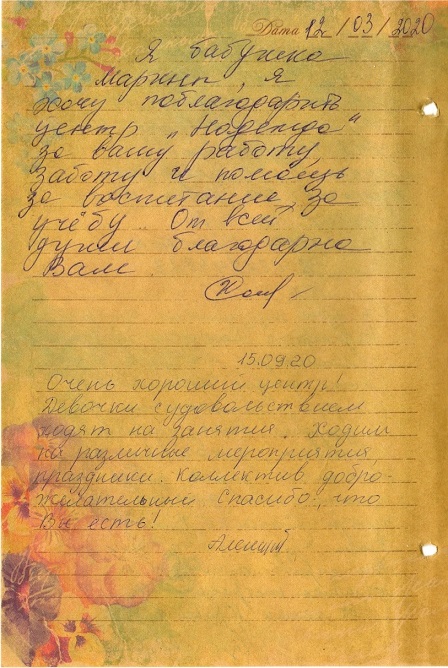 Дата 12/03/2020
Я бабушка
Марины, я
хочу поблагодарить
центр „Надежда"
за вашу работу,
заботу и помощь
за воспитание, за
учёбу. От всей
души благодарна
Вам
15.09.20
Очень хороший центр!
Девочки с удовольствием
ходят на занятия. Ходим
на различные мероприятия
праздники. Коллектив добро-
желательный Спасибо, что
Вы есть!